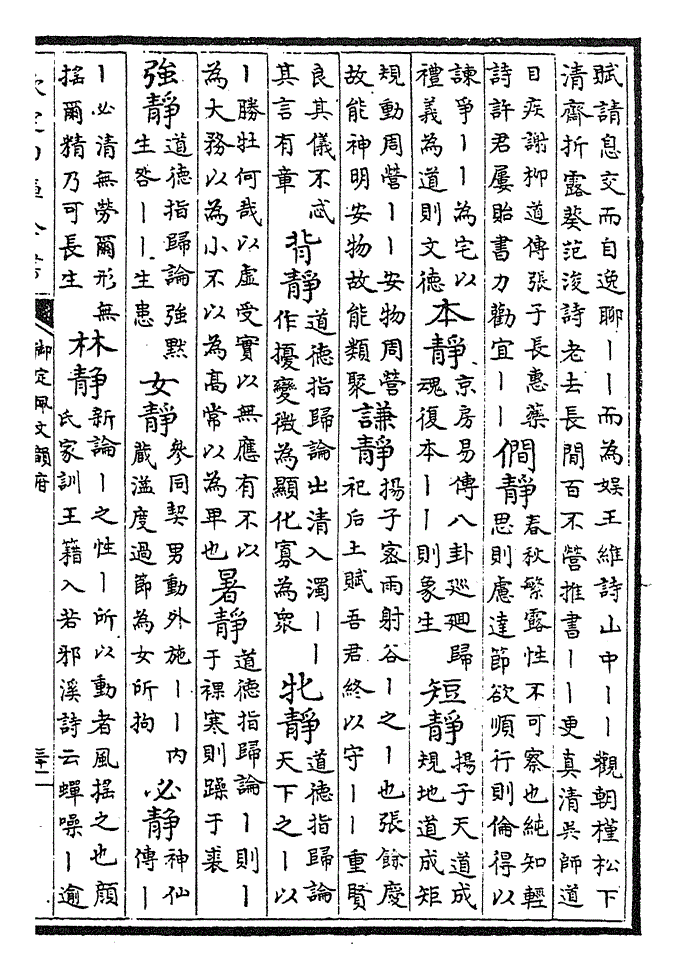 賦請息交而自逸聊丨丨而為娛王維詩山中丨丨觀朝槿松下
清齋折露葵范浚詩老去長閒百不營推書丨丨更真清吳師道
日疾謝柳道傳張子長惠藥
詩許君屢貽書力勸宜丨丨
僩靜
春秋繁露性不可察也純知輕
思則慮達節欲順行則倫得以
諫爭丨丨為宅以
禮義為道則文德
本靜
京房易傳八卦廵迴歸
魂復本丨丨則象生
短靜
揚子天道成
規地道成矩
規動周營丨丨安物周營
故能神明安物故能類聚
謙靜
揚子密雨射谷丨之丨也張餘慶
祀后土賦吾君終以守丨丨重賢
良其儀不忒
其言有章
背靜
道德指歸論出清入濁丨丨
作擾變微為顯化寡為衆
牝靜
道德指歸論
天下之丨以
丨勝牡何哉以虛受實以無應有不以
為大務以為小不以為高常以為卑也
暑靜
道德指歸論丨則丨
于裸寒則躁于裘
強靜
道德指歸論強黙
生咎丨丨生患
女靜
參同契男動外施丨丨内
藏溢度過節為女所拘
必靜
神仙
傳丨
丨必清無勞爾形無
摇爾精乃可長生
林靜
新論丨之性丨所以動者風摇之也顔
氏家訓王籍入若邪溪詩云蟬噪丨逾
欽定四庫全書
御定佩文韻府